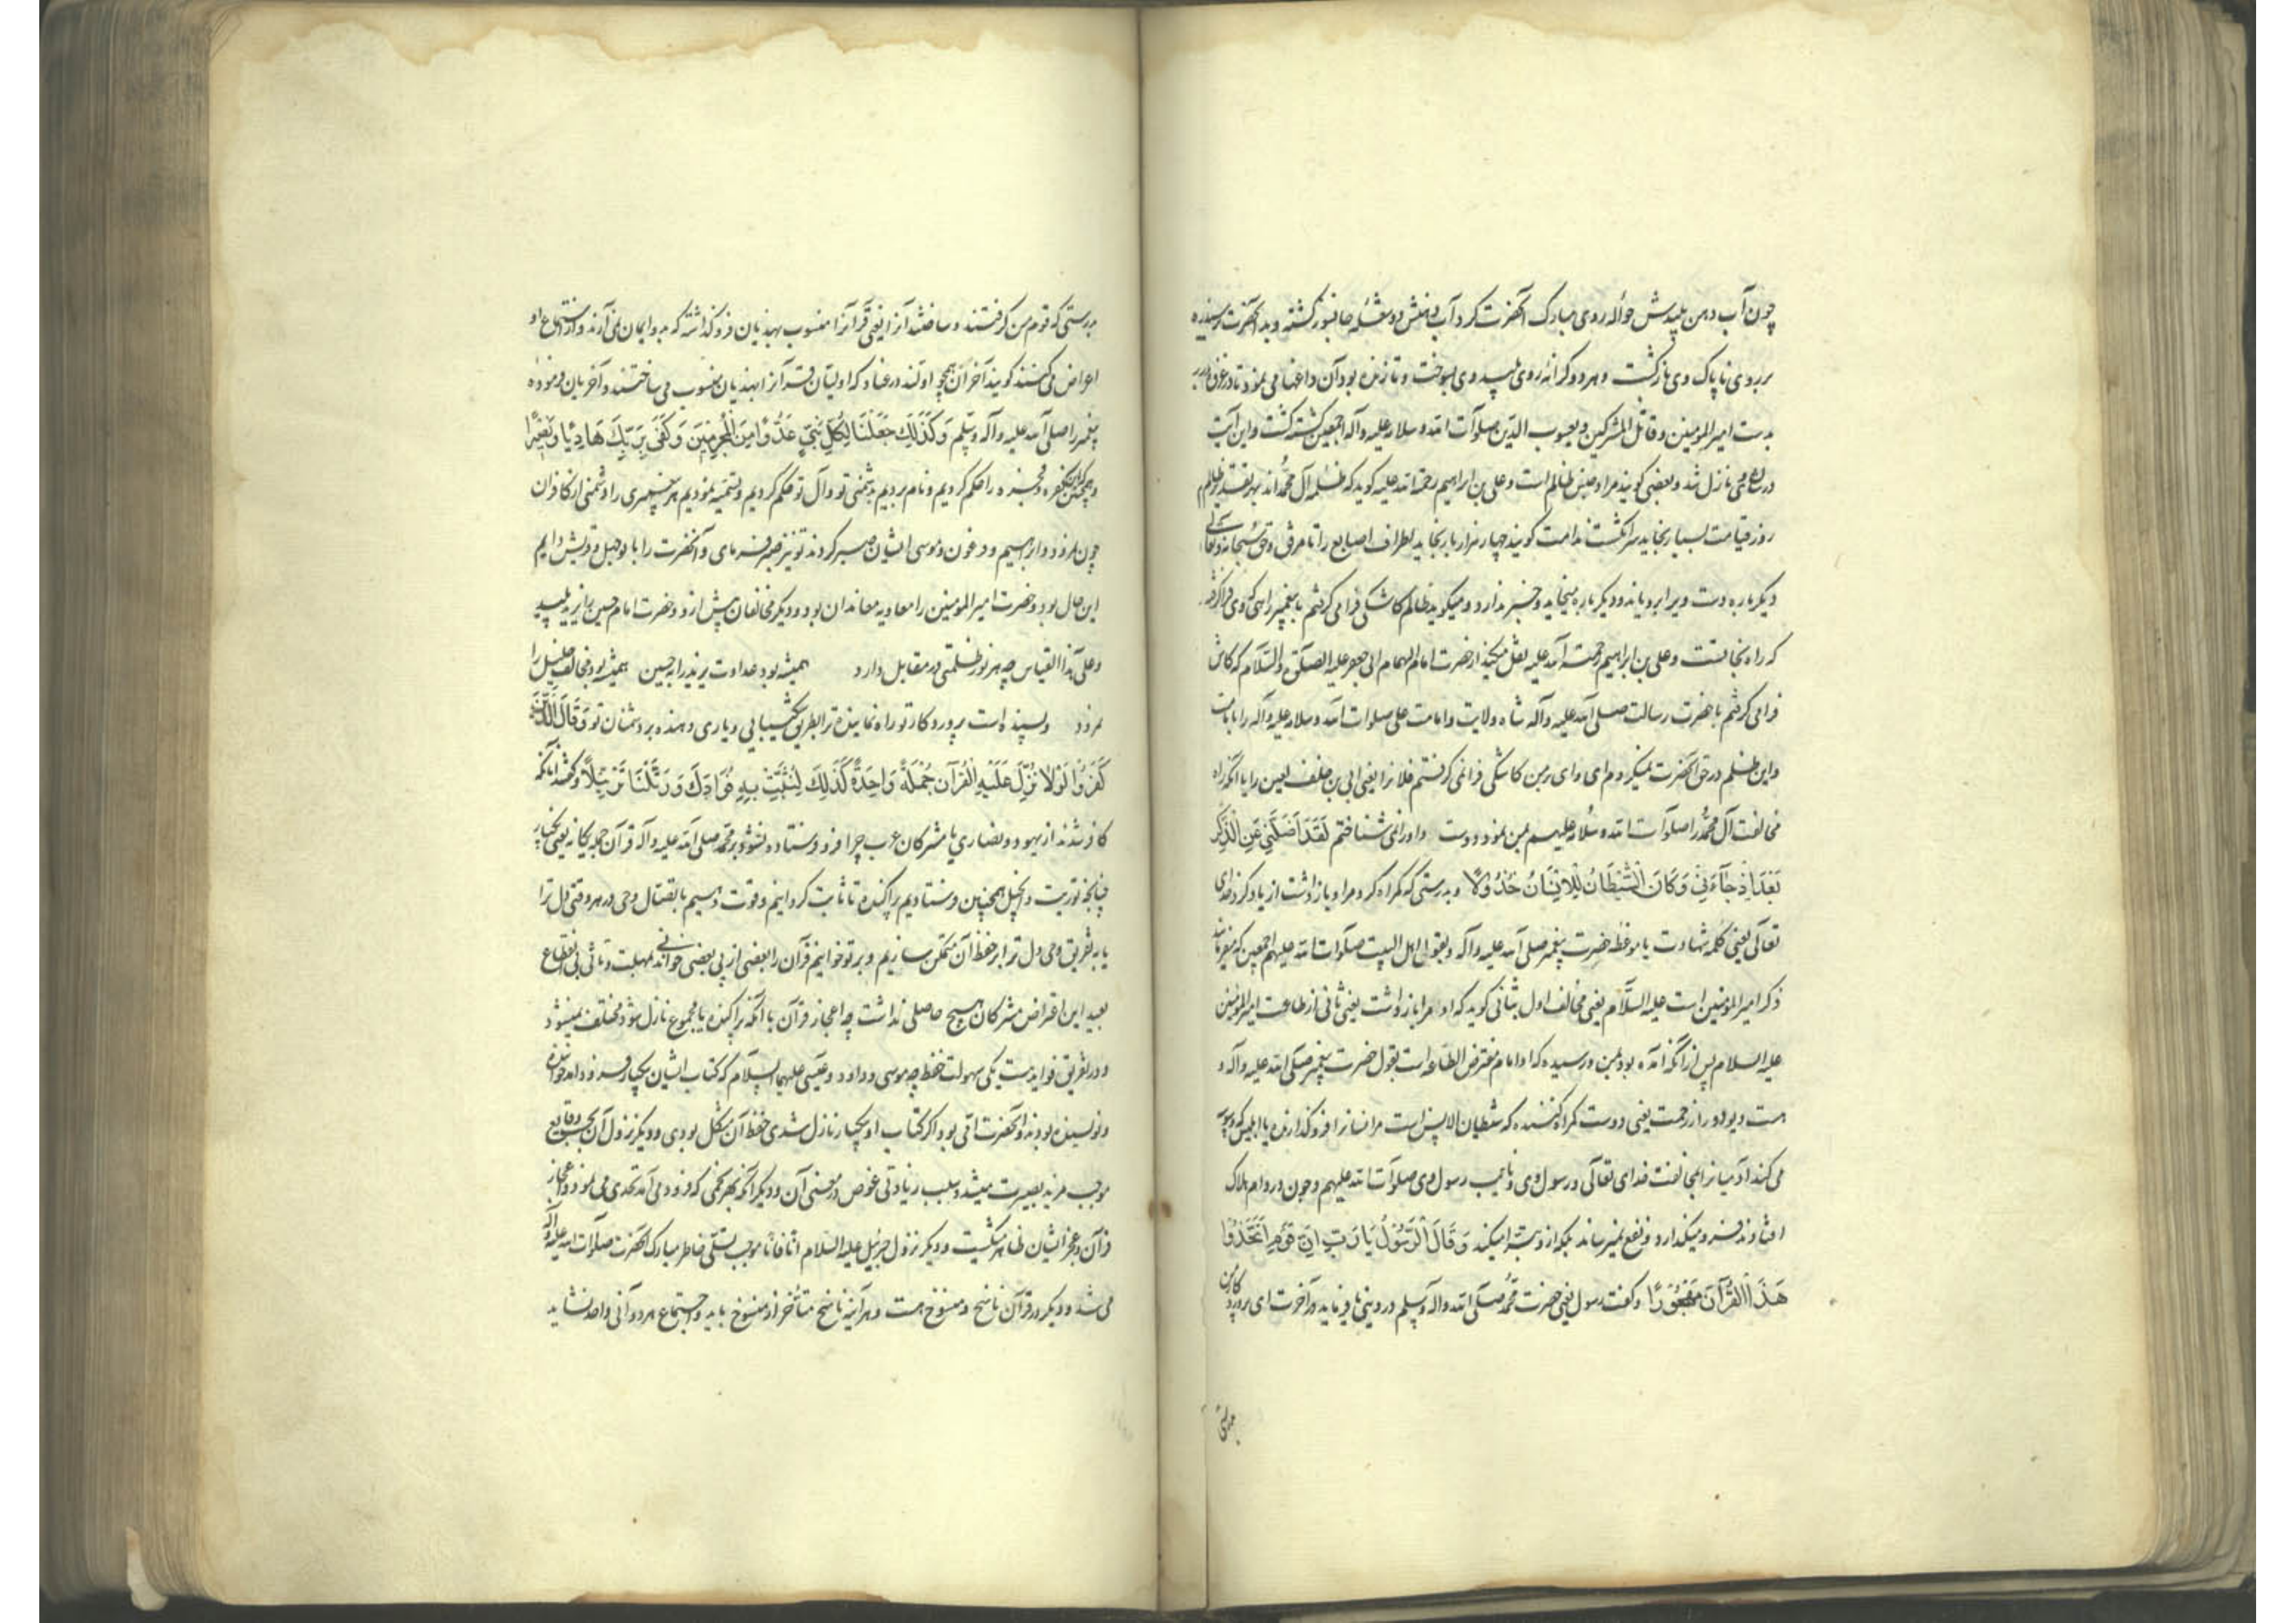 چون آب دهن پلیدش حواله روی مبارک آنحضرت کرد آب دهنش دو شعله جانسوز کشته و بد آنحضرت نرسیده
بر روی ناپاک وی بازگشت و هر دو کرانه روی پلید وی بسوخت و تا زنده بود آن داغها می نمود تا در غزوه بدر
بدست امیرالمومنین و قاتل المشرکین و یعسوب الدین صلوات الله و سلامه علیه و آله اجمعین کشته گشت و این آیت
نازل شد و بعضی گویند مراد جنس ظالم است و علی بن ابراهیم رحمة الله علیه گوید که ظلمه آل محمداند بهر تقدیر ظالم
روز قیامت بسیار بخاید سر انگشت ندامت گویند چهار هزار بار بخاید اطراف اصابع را تا مرفق و حق سبحانه و تعالی
دیگر باره دست ویرا برویاند و دیگر باره میخاید و خبر ندارد و میگوید ظالم کاشکی فرا می گرفتم با پیغمبر راهی که وی فرا گرفته
که راه نجاتست و علی بن ابراهیم رحمة الله علیه نقل میکند از حضرت امام الهمام ابی جعفر علیه الصلوة و السلام که کاش
فرا می گرفتم با حضرت رسالت صلی الله علیه و آله شاه ولایت و امامت علی صلوات الله و سلامه علیه و آله را
و این ظلم در حق آنحضرت نمیکردم ای وای بر من کاشکی فرا نمی گرفتم فلانرا یعنی ابی بن خلف لعین را یا آنکه راه
مخالفت آل محمد را صلوات الله و سلامه علیهم بمن نمود دوست و او را نمی شناختم لَقَدْ اَضَلَّنِی عَنِ الذِّکْرِ
بَعْدَ اِذْ جَآءَنِی وَ کَانَ الشَّیْطَانُ لِلْاِنْسَانِ خَذُولًا و بدرستی که گمراه کرد مرا و باز داشت از یاد کرد خدای
تعالی یعنی کلمه شهادت یا موعظه حضرت پیغمبر صلی الله علیه و آله و بقول اهل البیت صلوات الله علیهم اجمعین که
ذکر امیرالمومنین است علیه السلام یعنی مخالف اول بثانی گوید که او مرا باز داشت یعنی ثانی از طاعت امیرالمومنین
علیه السلام پس از آنکه آمده بود بمن و رسیده که او امام مفترض الطاعه است بقول حضرت پیغمبر صلی الله علیه و آله و
هست دیو دور از رحمت یعنی دوست گمراه کننده که شیطان الانس است مر انسانرا فرو گذارنده یا ابلیس که وسوسه
می کند آدمیانرا بمخالفت خدای تعالی و رسول وی و نایب رسول وی صلوات الله علیهم و چون در دام هلاک
افتادند فرو میگذارد و نفع نمیرساند بلکه از و تبرا میکند وَ قَالَ الرَّسُولُ یَا رَبِّ اِنَّ قَوْمِی اتَّخَذُوا
هٰذَا الْقُرْآنَ مَهْجُورًا و گفت رسول یعنی حضرت محمد صلی الله و آله و سلم در دنیی یا فرماید در آخرت ای پروردگار من
بدرستی
بدرستی که قوم من گرفتند و ساختند آنرا یعنی قرآنرا منسوب بهذیان فرو گذاشته که بدو ایمان نمی آرند و از استماع او
اعراض می کنند گویند آخران همچو اولند در عناد که اولیان قرآنرا بهذیان منسوب می ساختند و آخریان فرموده
پیغمبر را صلی الله علیه و آله و سلم وَ کَذٰلِکَ جَعَلْنَا لِکُلِّ نَبِیٍّ عَدُوًّا مِنَ الْمُجْرِمِینَ وَ کَفٰی بِرَبِّکَ هَادِیًا وَ نَصِیرًا
و همچنین که کفره و فجره را حکم کردیم و نام بردیم بدشمنی تو و آل تو حکم کردیم و تسمیه نمودیم هر پیغمبری را دشمنی از کافران
چون نمرود و ابراهیم و فرعون و موسی ایشان صبر کردند تو نیز صبر فرمای و آنحضرت را با بوجهل و قریش دایم
این حال بود و حضرت امیرالمومنین را معاویه معاند ان بود و دیگر مخالفان پیش از و و حضرت امام حسین را یزید پلید
و علی هذا القیاس چه هر نور ظلمتی در مقابل دارد همیشه بود عداوت یزید را بحسین همیشه بود مخالف خلیل را
نمرود و بسنده است پروردگار تو راه نماینده ترا بطریق شکیبایی و یاری دهنده بر دشمنان تو وَ قَالَ الَّذِینَ
کَفَرُوا لَوْلَا نُزِّلَ عَلَیْهِ الْقُرْآنُ جُمْلَةً وَاحِدَةً کَذٰلِکَ لِنُثَبِّتَ بِهِ فُؤَادَکَ وَ رَتَّلْنَاهُ تَرْتِیلًا و گفتند آنانکه
کافر شدند از یهود و نصاری یا مشرکان عرب چرا فرو فرستاده نشود بر محمد صلی الله علیه و آله قرآن جمله یکانه یعنی یکبار
چنانچه توریت و انجیل همچنین فرستادیم پراکنده تا ثابت گردانیم و قوت دهیم باتصال وحی در هر وقتی دل ترا
یا به تفریق وحی دل ترا بر حفظ آن متمکن سازیم و بر تو خوانیم قرآن را بعضی از پی بعضی خواندنی بمهلت و تانی بی انقطاع
بعید این اقتراض مشرکان هیچ حاصلی نداشت چه اعجاز قرآن با آنکه پراکنده یا مجموع نازل شود مختلف نمیشود
و در تفریق فوایدست یکی سهولت حفظ چه موسی و داود و عیسی علیهم السلام که کتاب ایشان یکبار فرود آمد خواننده
و نویسنده بودند و آنحضرت امّی بود اگر کتاب او یکبار نازل شدی حفظ آن مشکل بودی و دیگر نزول آن بحسب وقایع
موجب مزید بصیرت میشد و سبب زیادتی غوص در معنی آن و دیگر آنکه بهر نجمی که فرود می آمد تحدی می نمود و اعجاز
قرآن و عجز ایشان ظاهر میگشت و دیگر نزول جبرئیل علیه السلام آنا فانا موجب تسلی خاطر مبارک آنحضرت صلوات الله علیه و آله
می شد و دیگر در قرآن ناسخ و منسوخ هست و هر آینه ناسخ متأخر از منسوخ باید و اجتماع هر دو آنی واحد نشاید